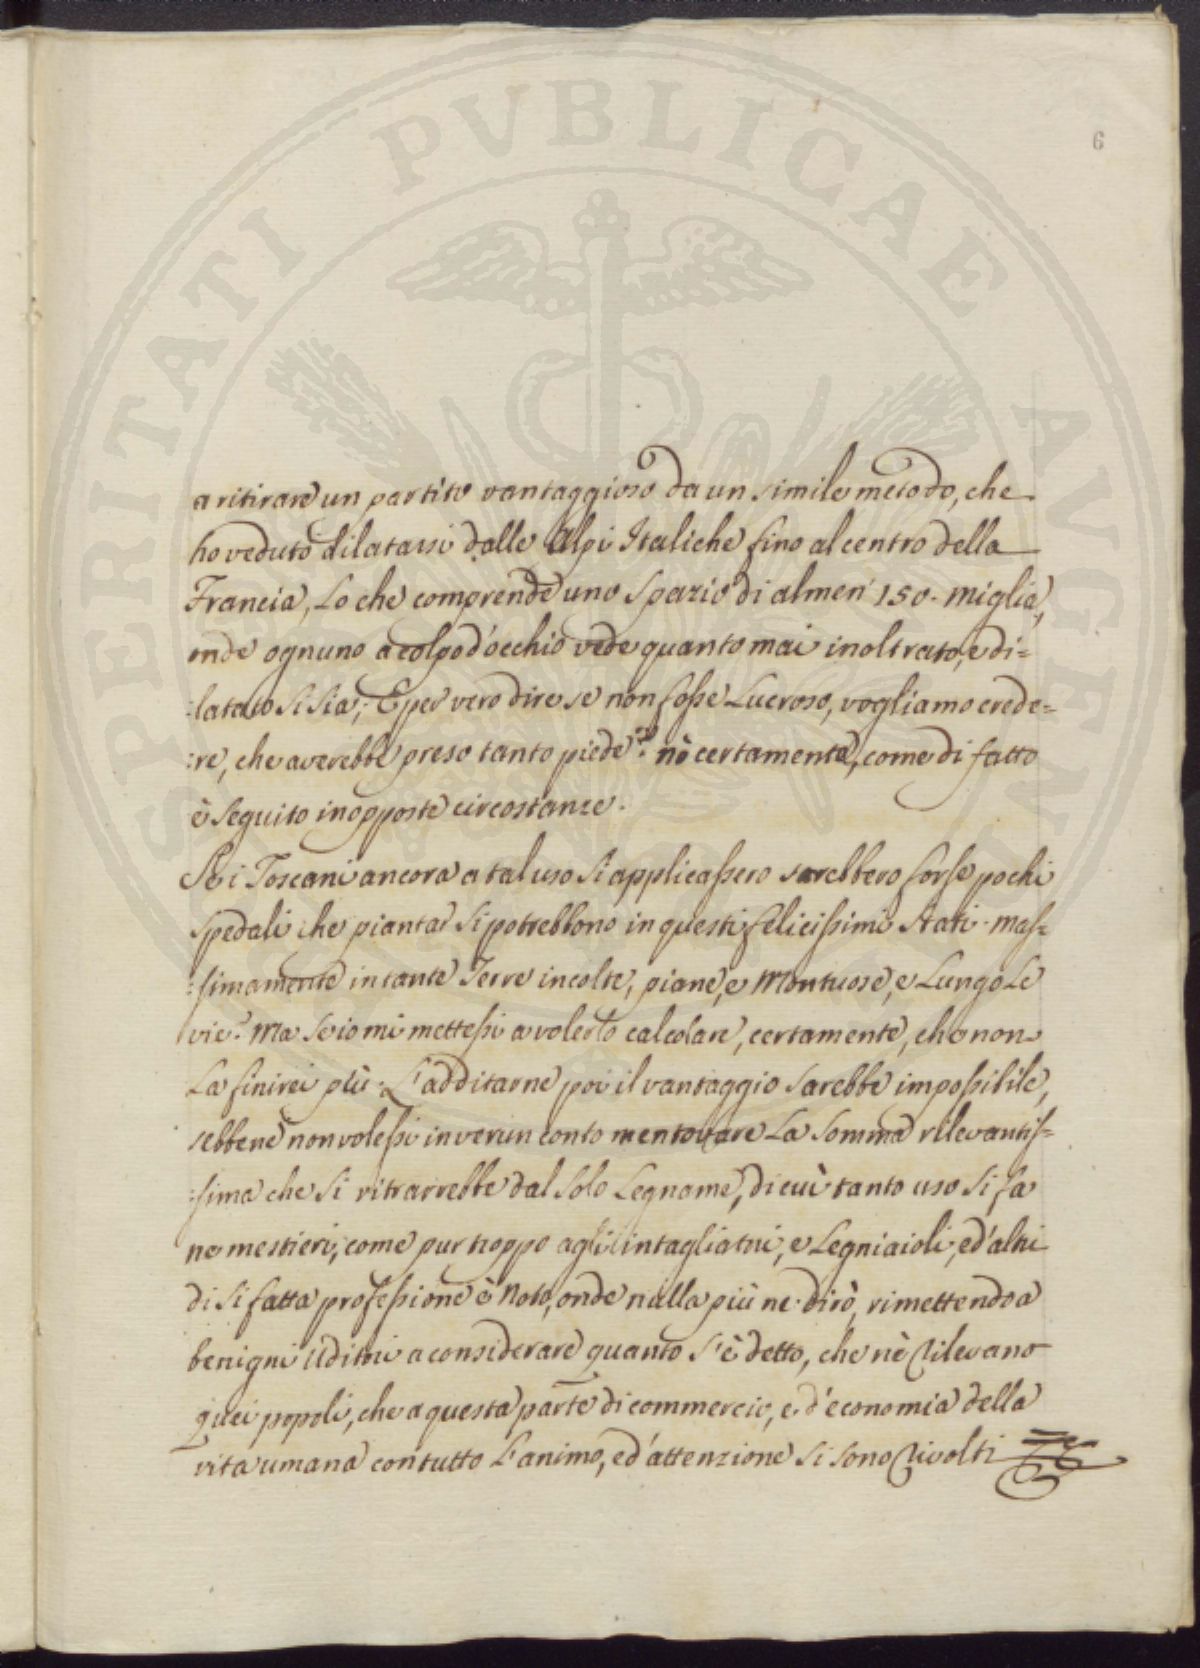 6
a ritirare un partito vantaggioso da un simile metodo, che
ho veduto dilatarsi dalle Alpi Italiche fino al centro della
Francia, Lo che comprende uno Spazio di almen 150. Miglia,
onde ognuno a colpo d'occhio vede quanto mai inoltrato, e di=
:latato Si Sia; E per vero dire se non fosse Lucroso, vogliamo crede=
:re, che averebbe preso tanto piede? nò certamente, come di fatto
è Seguito in opposte circostanze.
Se i Toscani ancora a tal uso Si applicassero sarebbero forse pochi
Spedali che pianta' Si potrebbono in questi felicissimi Stati. mas=
:simamente in tante Terre incolte, piane, e Montuose, e Lungo Le
vie? Ma Se io mi mettessi a volerlo calcolare, certamente, che non
La finirei più: L'additarne poi il vantaggio Sarebbe impossibile,
sebbene non volessi in verun conto mentovare La Somma rilevantis=
:sima che Si ritrarrebbe dal Solo Legname, di cui tanto uso Si fa
ne mestieri, come pur troppo agli intagliatori, e Legniaioli, ed'altri
di Sì fatta professione è Noto, onde nulla più ne dirò, rimettendo a
benigni Uditori a considerare quanto S'è detto, che nè Rilevano
quei popoli, che a questa parte di commercio, e d'economia della
vita umana con tutto L'animo, ed'attenzione Si Sono Rivolti
SPERITATI PVBLICAE AVGE